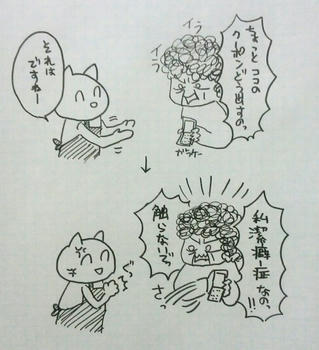 ちょっとココの
クーポンどう出すのっ
イラ
イラ
それは
ですねー
ガラケー
↓
私潔癖症なのっ!!
触らないでっ
さっ